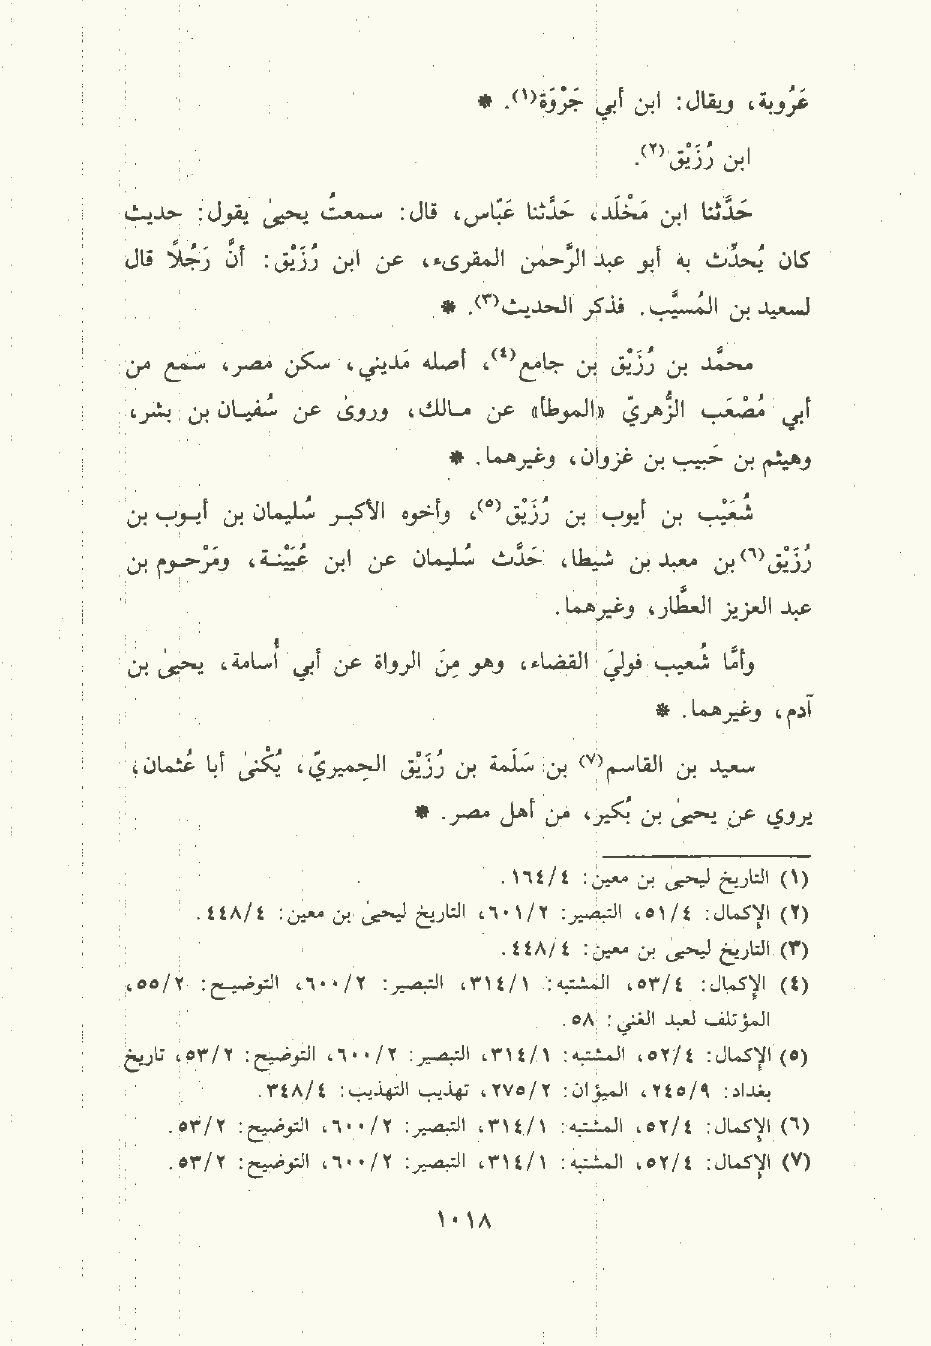 عَرُوبة، ويقال: ابن أبي جَرْوَة(١). *
ابن رُزَيْق(٢).
حَدَّثنا ابن مَخْلَد، حَدَّثنا عَبّاس، قال: سمعتُ يحيىٰ يقول: حديث
كان يُحدِّث به أبو عبد الرَّحمٰن المقرىء، عن ابن رُزَيْق: أنَّ رَجُلاً قال
لسعيد بن المُسيَّب. فذكر الحديث(٣). *
محمَّد بن رُزَيْق بن جامع(٤)، أصله مَديني، سكن مصر، سمع من
أبي مُصْعَب الزُّهريّ «الموطأ» عن مـالك، وروىٰ عن سُفيـان بن بشر،
وهيثم بن حَبيب بن غزوان، وغيرهما. *
شُعَيْب بن أيوب بن رُزَيْق(٥)، وأخوه الأكبـر سُليمان بن أيـوب بن
رُزَيْق(٦) بن معبد بن شيطا، حَدَّث سُليمان عن ابن عُيَيْنـة، ومَرْحـوم بن
عبد العزيز العطَّار، وغيرهما.
وأمَّا شُعيب فوليَ القضاء، وهو مِنَ الرواة عن أبي أُسامة، يحيىٰ بن
آدم، وغيرهما. *
سعيد بن القاسم(٧) بن سَلَمة بن رُزَيْق الحِميريّ، يُكْنىٰ أبا عُثمان،
يروي عن يحيىٰ بن بُكير، من أهل مصر. *
(١) التاريخ ليحيىٰ بن معين: ١٦٤/٤.
(٢) الإكمال: ٥١/٤، التبصير: ٦٠١/٢، التاريخ ليحيىٰ بن معين: ٤٤٨/٤.
(٣) التاريخ ليحيىٰ بن معين: ٤٤٨/٤.
(٤) الإكمال: ٥٣/٤، المشتبه: ٣١٤/١، التبصير: ٦٠٠/٢، التوضيـح: ٥٥/٢،
المؤتلف لعبد الغني: ٥٨.
(٥) الإكمال: ٥٢/٤، المشتبه: ٣١٤/١، التبصير: ٦٠٠/٢، التوضيح: ٥٣/٢، تاريخ
بغداد: ٢٤٥/٩، الميزان: ٢٧٥/٢، تهذيب التهذيب: ٣٤٨/٤.
(٦) الإكمال: ٥٢/٤، المشتبه: ٣١٤/١، التبصير: ٦٠٠/٢، التوضيح: ٥٣/٢.
(٧) الإكمال: ٥٢/٤، المشتبه: ٣١٤/١، التبصير: ٦٠٠/٢، التوضيح: ٥٣/٢.
١٠١٨